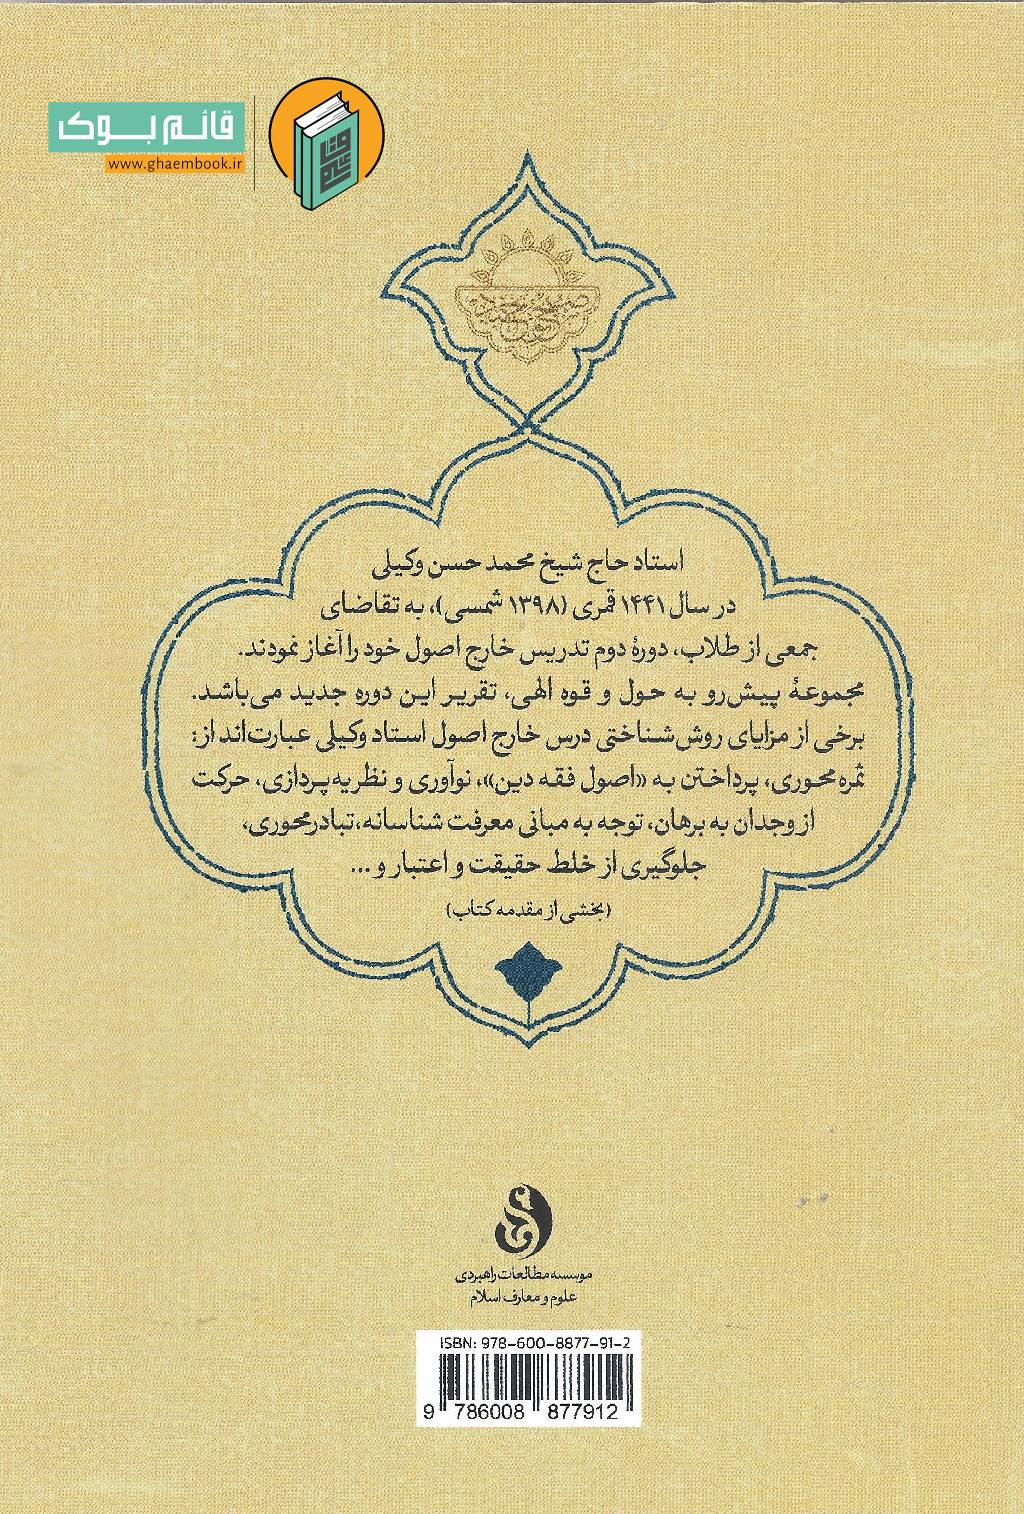 قائم بوک
www.ghaembook.ir
استاد حاج شیخ محمد حسن وکیلی
در سال ۱۴۴۱ قمری (۱۳۹۸ شمسی)، به تقاضای
جمعی از طلاب، دورهٔ دوم تدریس خارج اصول خود را آغاز نمودند.
مجموعهٔ پیش‌رو به حول و قوه الهی، تقریر این دوره جدید می‌باشد.
برخی از مزایای روش‌شناختی درس خارج اصول استاد وکیلی عبارت‌اند از:
ثمره‌محوری، پرداختن به «اصول فقه دین»، نوآوری و نظریه‌پردازی، حرکت
از وجدان به برهان، توجه به مبانی معرفت شناسانه، تبادرمحوری،
جلوگیری از خلط حقیقت و اعتبار و ...
(بخشی از مقدمه کتاب)
موسسه مطالعات راهبردی
علوم و معارف اسلام
ISBN: 978-600-8877-91-2
9 786008 877912